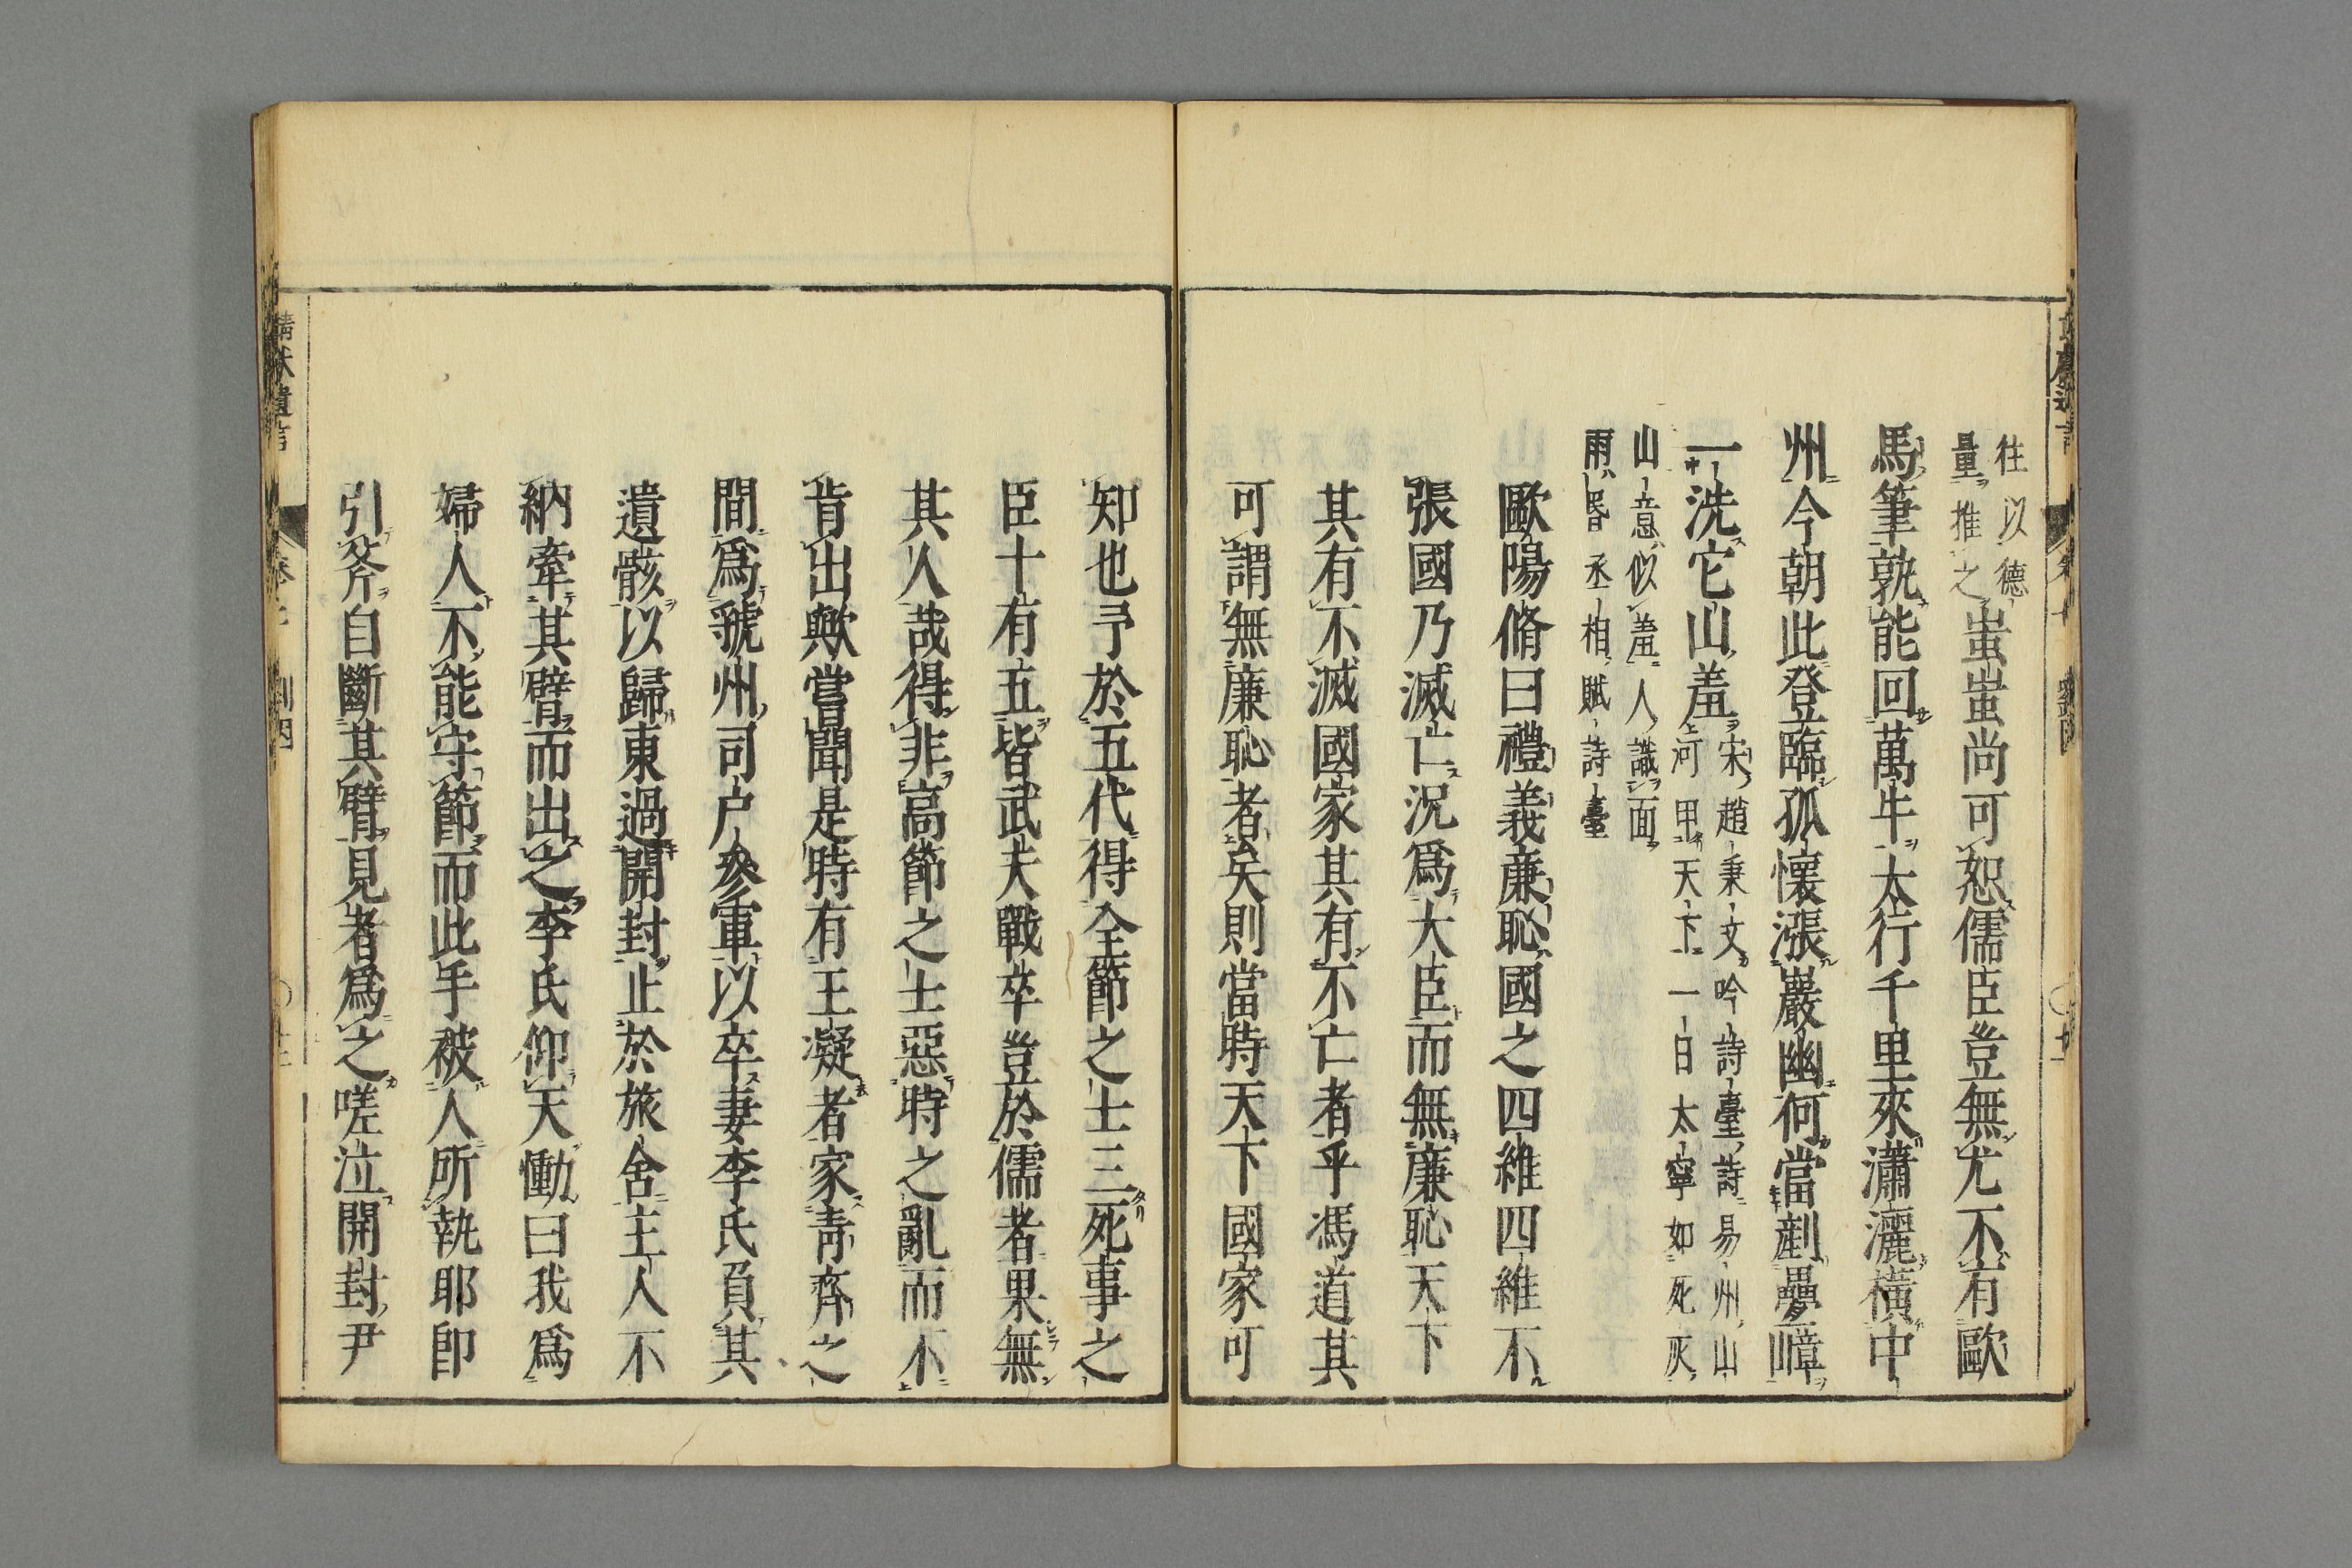 往以德
量推之
蚩蚩尚可恕儒臣豈無尤不有歐
馬筆孰能回萬牛太行千里來瀟灑橫中
州今朝此登臨孤懷漲巖幽何當剷疊嶂
一洗它山羞
宋趙秉文吟詩臺詩易州山
河甲天下一日太寧如死灰
山意似羞人識面
雨昏丞相賦詩臺
歐陽脩曰禮義廉恥國之四維四維不
張國乃滅亡況爲大臣而無廉恥天下
其有不滅國家其有不亡者乎馮道其
可謂無廉恥者矣則當時天下國家可
知也予於五代得全節之士三死事之
臣十有五皆武夫戰卒豈於儒者果無
其人哉得非高節之士惡時之亂而不
肯出歟嘗聞是時有王凝者家靑齊之
間爲虢州司户參軍以卒妻李氏負其
遺骸以歸東過開封止於旅舍主人不
納牽其臂而出之李氏仰天慟曰我爲
婦人不能守節而此手被人所執耶卽
引斧自斷其臂見者爲之嗟泣開封尹
靖獻遺言